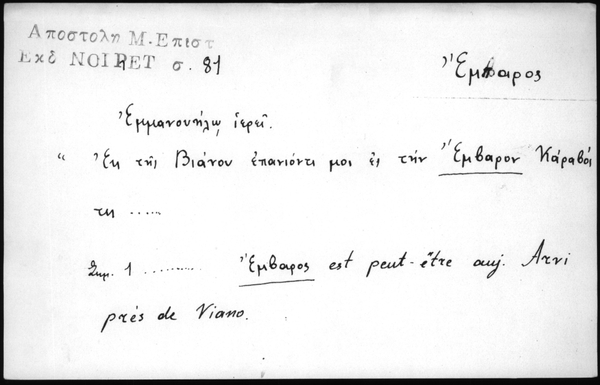 Αποστολη Μ. Επιστ
Εκδ NOIRET σ. 81
Ἔμβαρος
Ἐμμανουήλῳ ἱερεῖ.
" Ἐκ τῆς Βιάνου ἐπανιόντι μοι ἐς τὴν Ἔμβαρον Κάραβός
τις .....
Σημ. 1 .......... Ἔμβαρος est peut-être auj. Arvi
près de Viano.